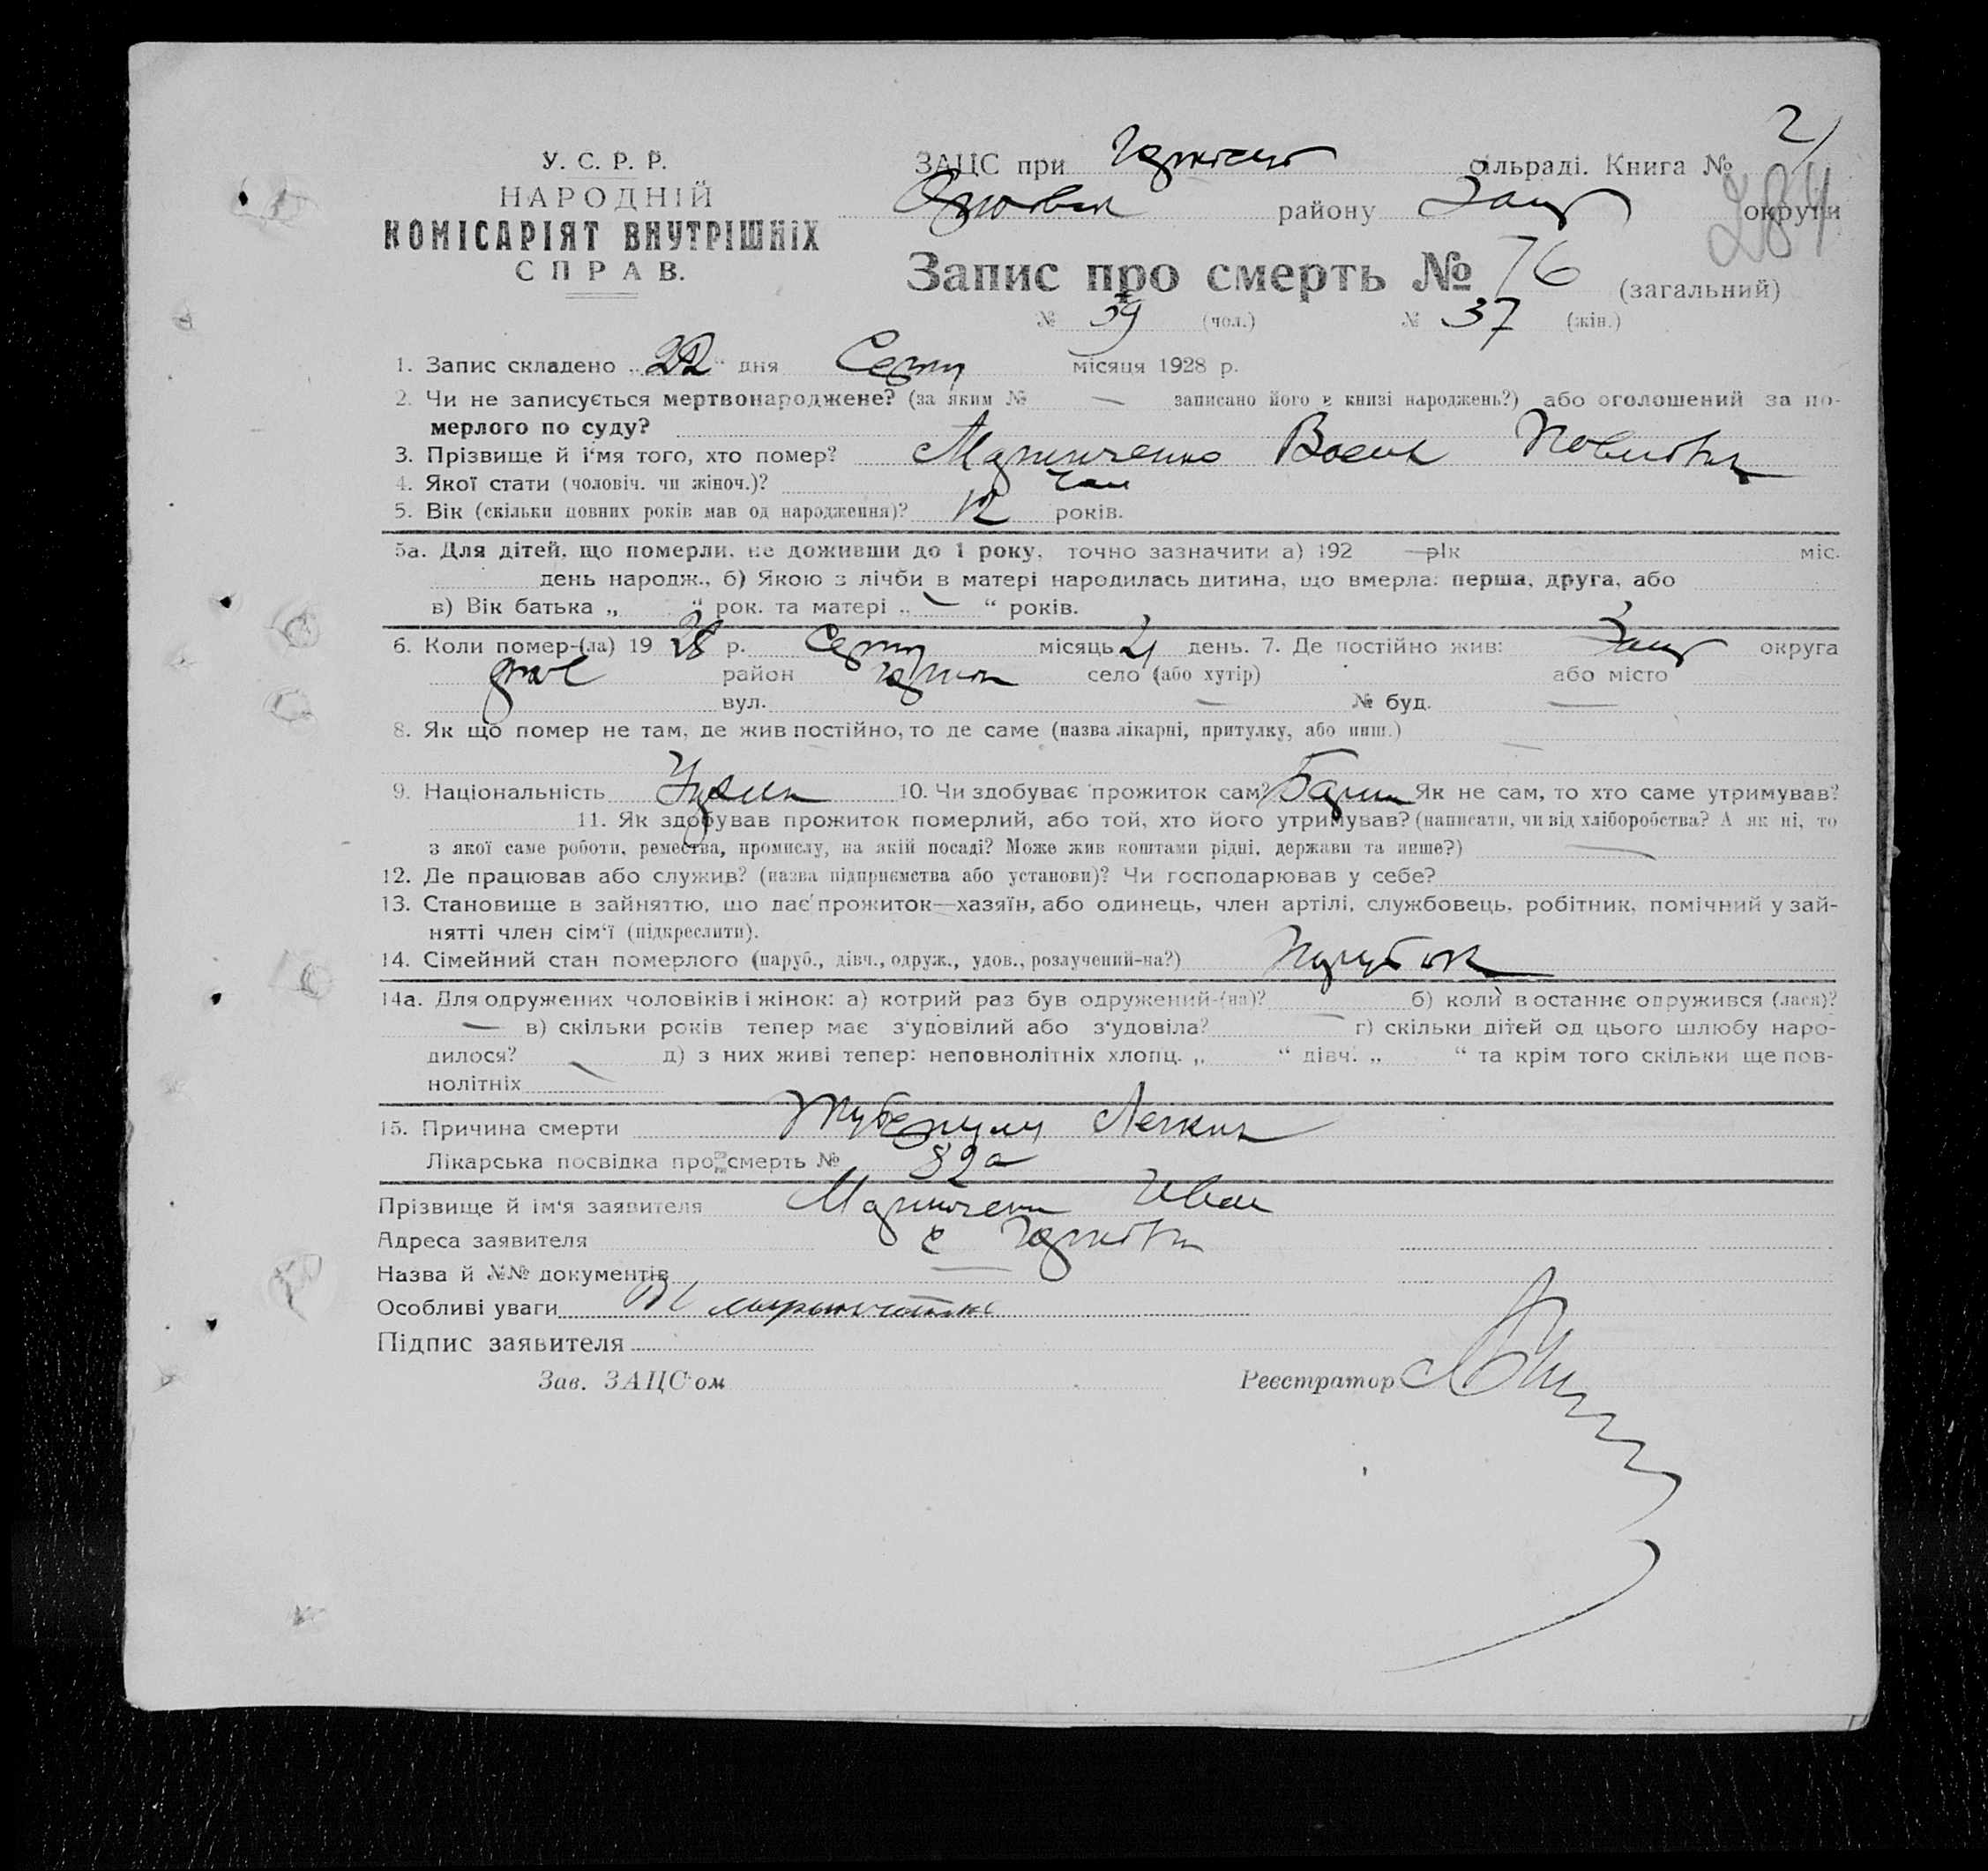 У. С. Р. Р.
НАРОДНІЙ
КОМІСАРІЯТ ВНУТРІШНіХ
СПРАВ.
ЗАЦС при сільраді. Книга № 2
району Запор округи
284
Запис про смерть № 76 (загальний)
№ 39 (чол.) № 37 (жін.)
1. Запис складено „22“ дня Серпн місяця 1928 р.
2. Чи не записується мертвонароджене? (за яким № — записано його в книзі народжень?) або оголошений за по-
мерлого по суду?
3. Прізвище й і'мя того, хто помер?
4. Якої стати (чоловіч. чи жіноч.)? Чол
5. Вік (скільки повних років мав од народження)? 12 років.
5а. Для дітей, що померли, не доживши до 1 року, точно зазначити а) 192 — рік міс.
день народж., б) Якою з лічби в матері народилась дитина, що вмерла: перша, друга, або
в) Вік батька „ “ рок. та матері „ — “ років.
6. Коли помер-(ла) 1928 р. Серпн місяць 21 день. 7. Де постійно жив: Запор округа
район село (або хутір) або місто
вул. — № буд. —
8. Як що помер не там, де жив постійно, то де саме (назва лікарні, притулку, або инш.) —
9. Національність 10. Чи здобуває прожиток сам? Як не сам, то хто саме утримував?
11. Як здобував прожиток померлий, або той, хто його утримував? (написати, чи від хліборобства? А як ні, то
з якої саме роботи, ремества, промислу, на якій посаді? Може жив коштами рідні, держави та инше?) —
12. Де працював або служив? (назва підприємства або установи)? Чи господарював у себе?
13. Становище в зайняттю, що дає прожиток—хазяїн, або одинець, член артілі, службовець, робітник, помічний у зай-
нятті член сім'ї (підкреслити).
14. Сімейний стан померлого (паруб., дівч., одруж., удов., розлучений-на?) Парубок
14а. Для одружених чоловіків і жінок: а) котрий раз був одружений-(на)? б) коли в останнє одружився (лася)?
— в) скільки років тепер має з'удовілий або з'удовіла? — г) скільки дітей од цього шлюбу наро-
дилося? — д) з них живі тепер: неповнолітніх хлопц. „ “ дівч. „ “ та крім того скільки ще пов-
нолітніх
15. Причина смерти Туберкулез Легких
Лікарська посвідка про смерть № 82а
Прізвище й ім'я заявителя Иван
Адреса заявителя с
Назва й №№ документів —
Особливі уваги
Підпис заявителя
Зав. ЗАЦС'ом Реєстратор